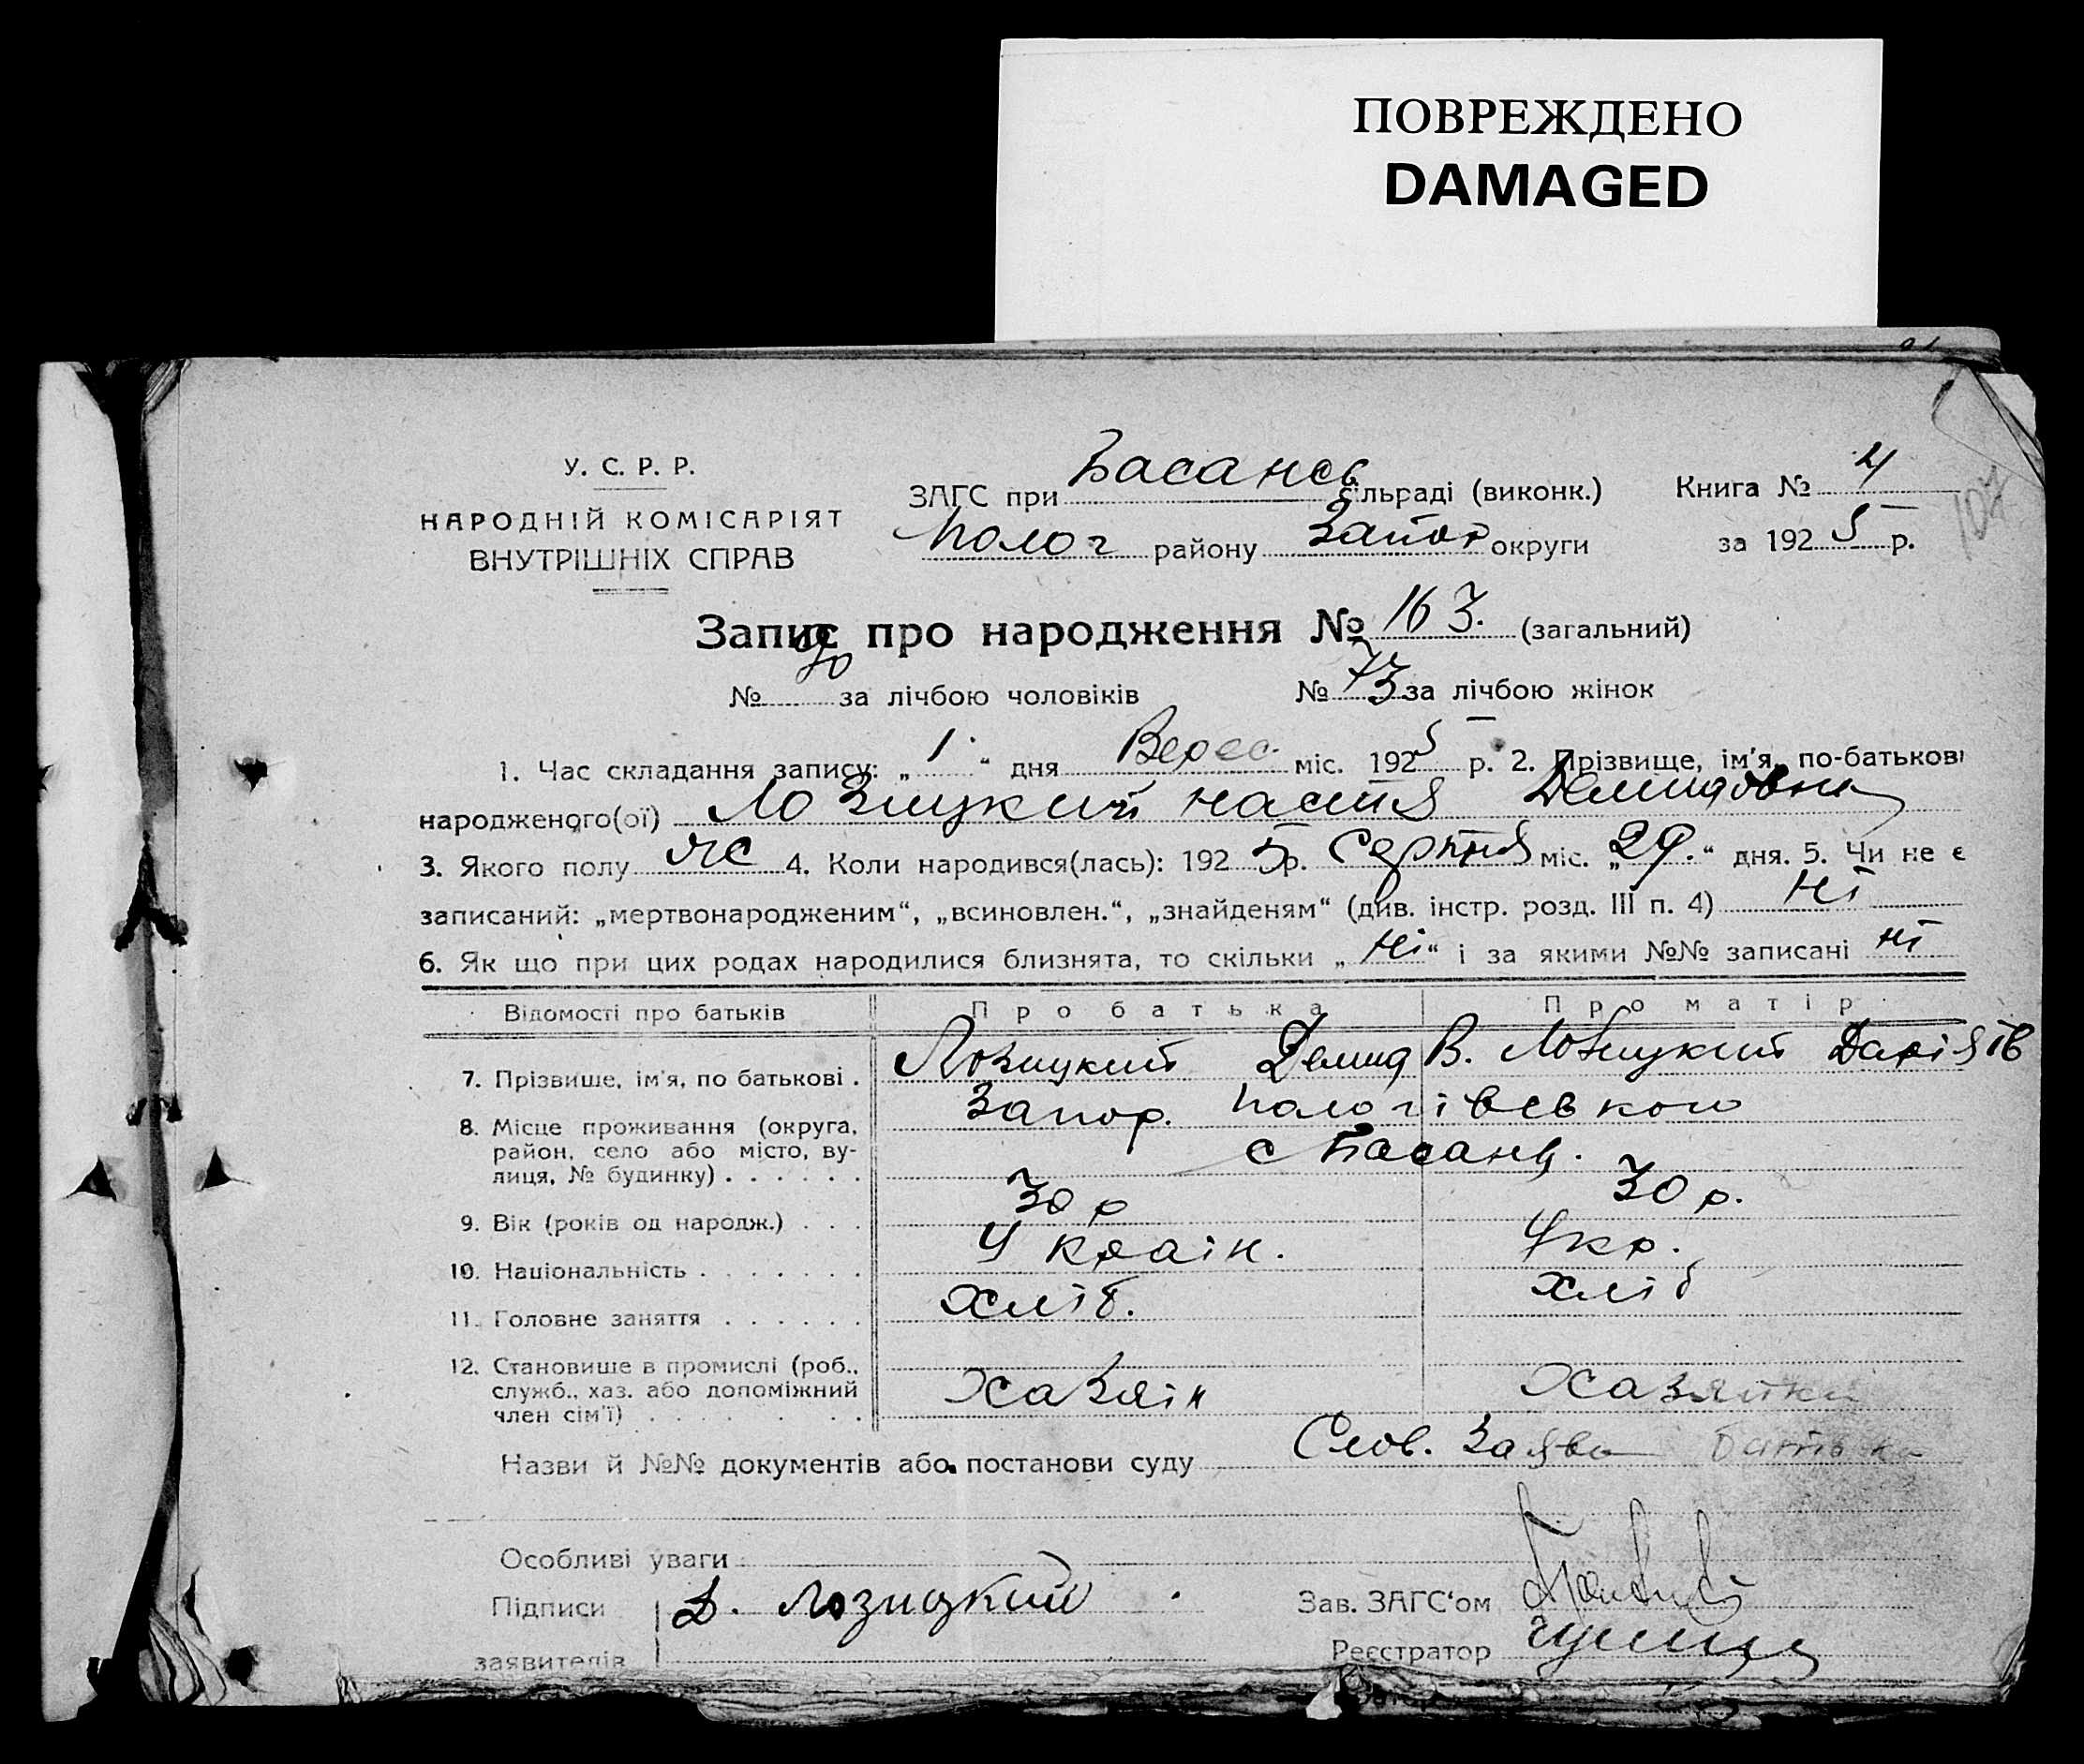 ПОВРЕЖДЕНО
DAMAGED
У. С. Р. Р.
НАРОДНІЙ КОМІСАРІЯТ
ВНУТРІШНІХ СПРАВ
ЗАГС при Басансь сільраді (виконк.)
Полог району Запор округи
Книга № 4
за 1925 р.
107
Запис про народження № 163. (загальний)
№ 90 за лічбою чоловіків № 73 за лічбою жінок
1. Час складання запису: „ 1 “ дня Верес. міс. 1925 р. 2. Прізвище, ім'я, по-батькові
народженого(ої) Лозицкий Настя Демидовна
3. Якого полу жс 4. Коли народився(лась): 1925 р. Серпня міс. „29.“ дня. 5. Чи не є
записаний: „мертвонародженим“, „всиновлен.“, „знайденям“ (див. інстр. розд. III п. 4) Ні
6. Як що при цих родах народилися близнята, то скільки „ Ні “ і за якими №№ записані ні
Відомості про батьків Про батька Про матір
7. Прізвише, ім'я, по батькові . Лозицкий Демид В. Лозицкий Дарія Ів
8. Місце проживання (округа, район, село або місто, вулиця, № будинку) . . . . . . Запор. Пологівсвкого
с Басань.
9. Вік (років од народж.) . . . 30 р 30 р.
10. Національність . . . . . . . Україн. Укр.
11. Головне заняття . . . . . . Хліб. Хліб
12. Становише в промислі (роб., служб., хаз. або допоміжний член сім'ї) . . . . . . Хазяін Хазяйка
Назви й №№ документів або постанови суду Слов. Заява батька
Особливі уваги
Підписи Д. Лозицкий Зав. ЗАГС‘ом
заявителів Реєстратор